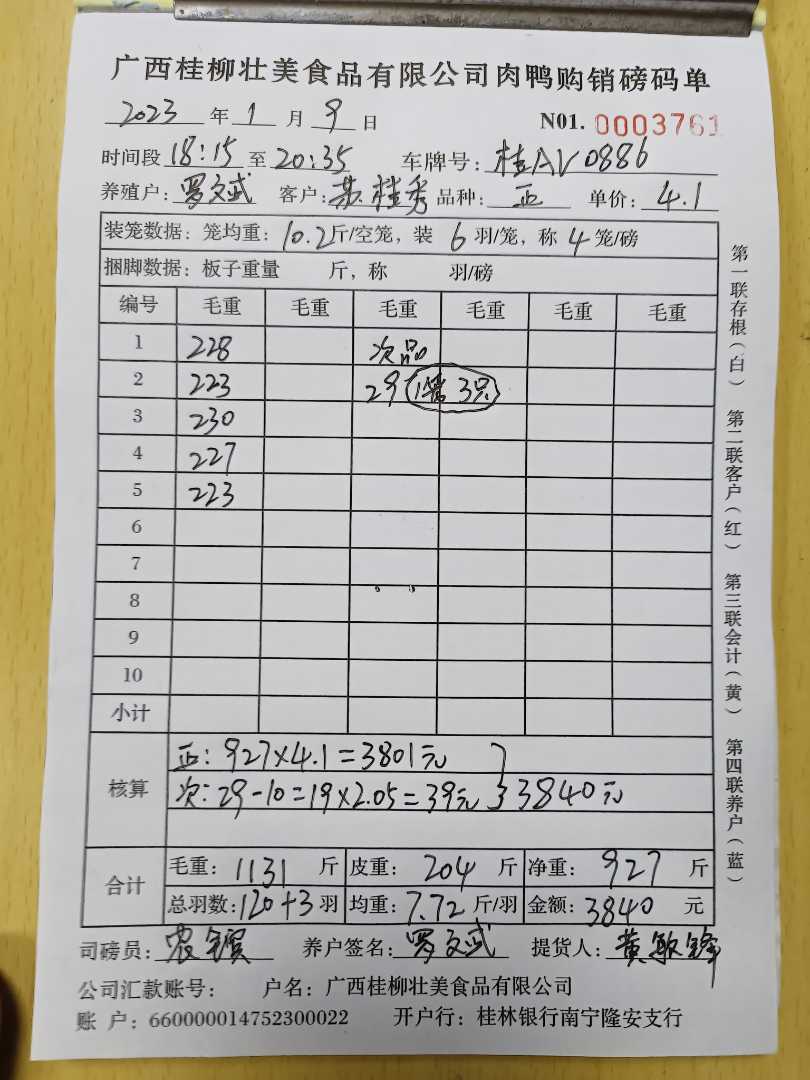 广西桂柳壮美食品有限公司肉鸭购销磅码单
2023 年 1 月 9 日 N01. 0003761
时间段 18:15 至 20:35 车牌号: 桂AV0886
养殖户: 罗文武 客户: 苏桂秀 品种: 正 单价: 4.1
装笼数据: 笼均重: 10.2斤/空笼, 装 6 羽/笼, 称 4 笼/磅
捆脚数据: 板子重量 斤, 称 羽/磅
编号 毛重 毛重 毛重 毛重 毛重 毛重
1 228 次品
2 223 29 (1笼 3只)
3 230
4 227
5 223
6
7
8
9
10
小计
核算
正: 927×4.1=3801元
次: 29-10=19×2.05=39元 } 3840元
合计
毛重: 1131 斤 皮重: 204 斤 净重: 927 斤
总羽数: 120+3 羽 均重: 7.72 斤/羽 金额: 3840 元
司磅员: 农 养户签名: 罗文武 提货人: 黄敏锋
公司汇款账号: 户名: 广西桂柳壮美食品有限公司
账 户: 660000014752300022 开户行: 桂林银行南宁隆安支行
第一联存根(白) 第二联客户(红) 第三联会计(黄) 第四联养户(蓝)